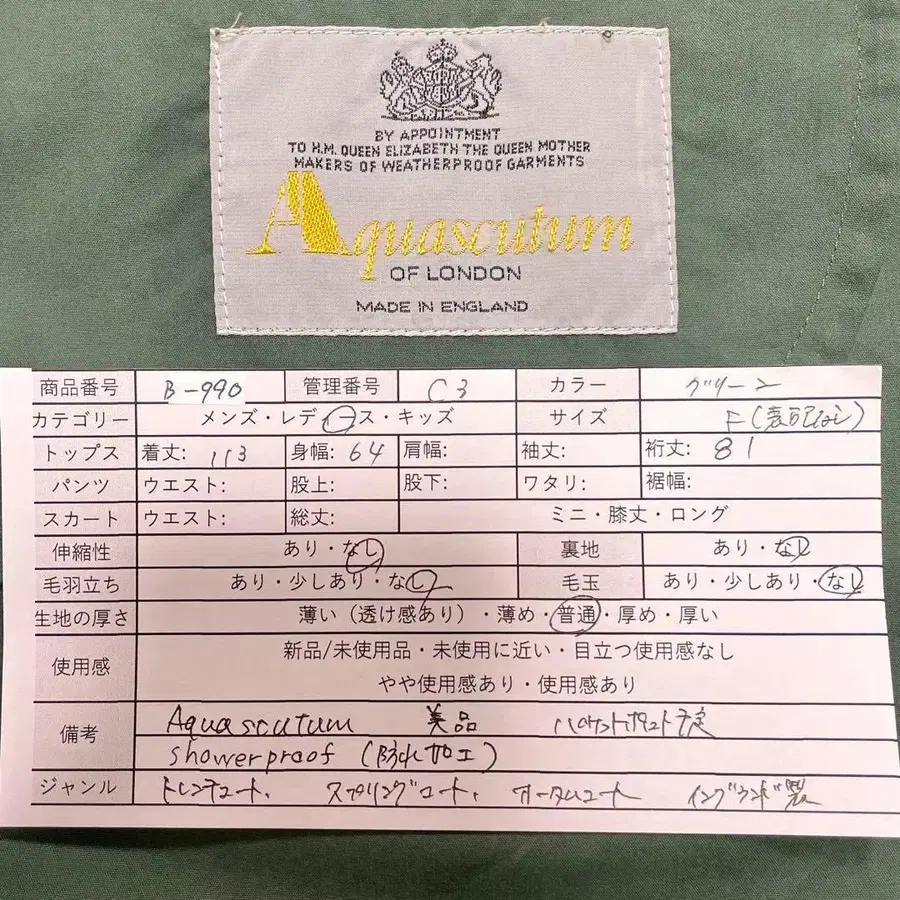 BY APPOINTMENT
TO H.M. QUEEN ELIZABETH THE QUEEN MOTHER
MAKERS OF WEATHERPROOF GARMENTS
Aquascutum
OF LONDON
MADE IN ENGLAND
商品番号 B-990 管理番号 C3 カラー グリーン
カテゴリー メンズ・レディース・キッズ サイズ F(表記なし)
トップス 着丈: 113 身幅: 64 肩幅: 袖丈: 裄丈: 81
パンツ ウエスト: 股上: 股下: ワタリ: 裾幅:
スカート ウエスト: 総丈: ミニ・膝丈・ロング
伸縮性 あり・なし 裏地 あり・なし
毛羽立ち あり・少しあり・なし 毛玉 あり・少しあり・なし
生地の厚さ 薄い(透け感あり)・薄め・普通・厚め・厚い
使用感 新品/未使用品・未使用に近い・目立つ使用感なし
やや使用感あり・使用感あり
備考 Aquascutum 美品
showerproof (防水加工)
ジャンル トレンチコート、スプリングコート、オータムコート イングランド製